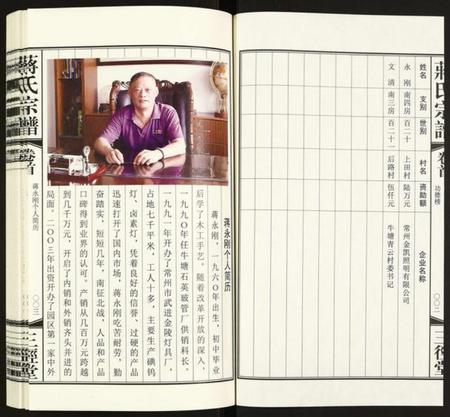 蔣氏宗譜 卷首 功德榜 〇〇二 三徑堂
姓名 支别 世别 村名 资助额 企业名称
永刚 南四房 百二十 上田村 陆万元 常州金凯照明有限公司
文清 南三房 百二十一 后路村 伍仟元 牛塘青云村委书记
蒋永刚个人简历
蒋永刚，一九六〇年出生，初中毕业
后学了木工手艺。随着改革开放的深入，
一九九〇年任牛塘石英玻管厂供销科长。
一九九一年开办了常州市武进金陵灯具厂，
占地七千平米，工人十多，主要生产碘钨
灯、卤素灯，凭着良好的信誉、过硬的产品
迅速打开了国内市场，蒋永刚吃苦耐劳，勤
奋踏实，短短几年，南征北战，人品和产品
口碑得到业界的认可。产销从几百万元跨越
到几千万元，开启了内销和外销齐头并进的
局面。二〇〇三年出资开办了园区第一家中外
蔣氏宗譜 卷首 蒋永刚个人简历 〇〇三 三徑堂